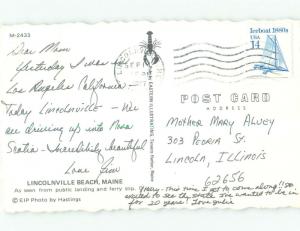 M-2433
Dear Mom
Yesterday I was in
Los Angeles California -
Today Lincolnville - We
are driving up into Nova
Scotia - Incredibly beautiful
Love
LINCOLNVILLE BEACH, MAINE
As seen from public landing and ferry slip.
©EIP Photo by Hastings
EASTERN ILLUSTRATING, Tenants Harbor, Maine
Iceboat 1880s
USA
14
POST CARD
ADDRESS
MOTHER MARY ALVEY
303 PEORIA ST.
LINCOLN, ILLINOIS
62656
this time I get to come along! So
excited to see the state I've wanted to be in
for 20 years! Love